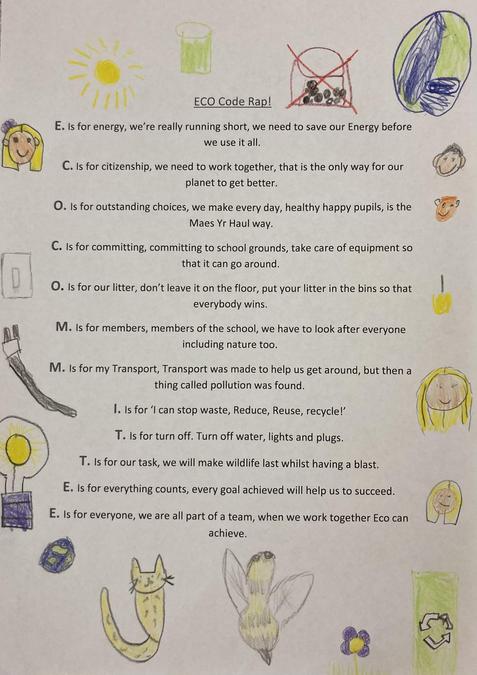 ECO Code Rap!
E. Is for energy, we're really running short, we need to save our Energy before
we use it all.
C. Is for citizenship, we need to work together, that is the only way for our
planet to get better.
O. Is for outstanding choices, we make every day, healthy happy pupils, is the
Maes Yr Haul way.
C. Is for committing, committing to school grounds, take care of equipment so
that it can go around.
O. Is for our litter, don't leave it on the floor, put your litter in the bins so that
everybody wins.
M. Is for members, members of the school, we have to look after everyone
including nature too.
M. Is for my Transport, Transport was made to help us get around, but then a
thing called pollution was found.
I. Is for 'I can stop waste, Reduce, Reuse, recycle!'
T. Is for turn off. Turn off water, lights and plugs.
T. Is for our task, we will make wildlife last whilst having a blast.
E. Is for everything counts, every goal achieved will help us to succeed.
E. Is for everyone, we are all part of a team, when we work together Eco can
achieve.